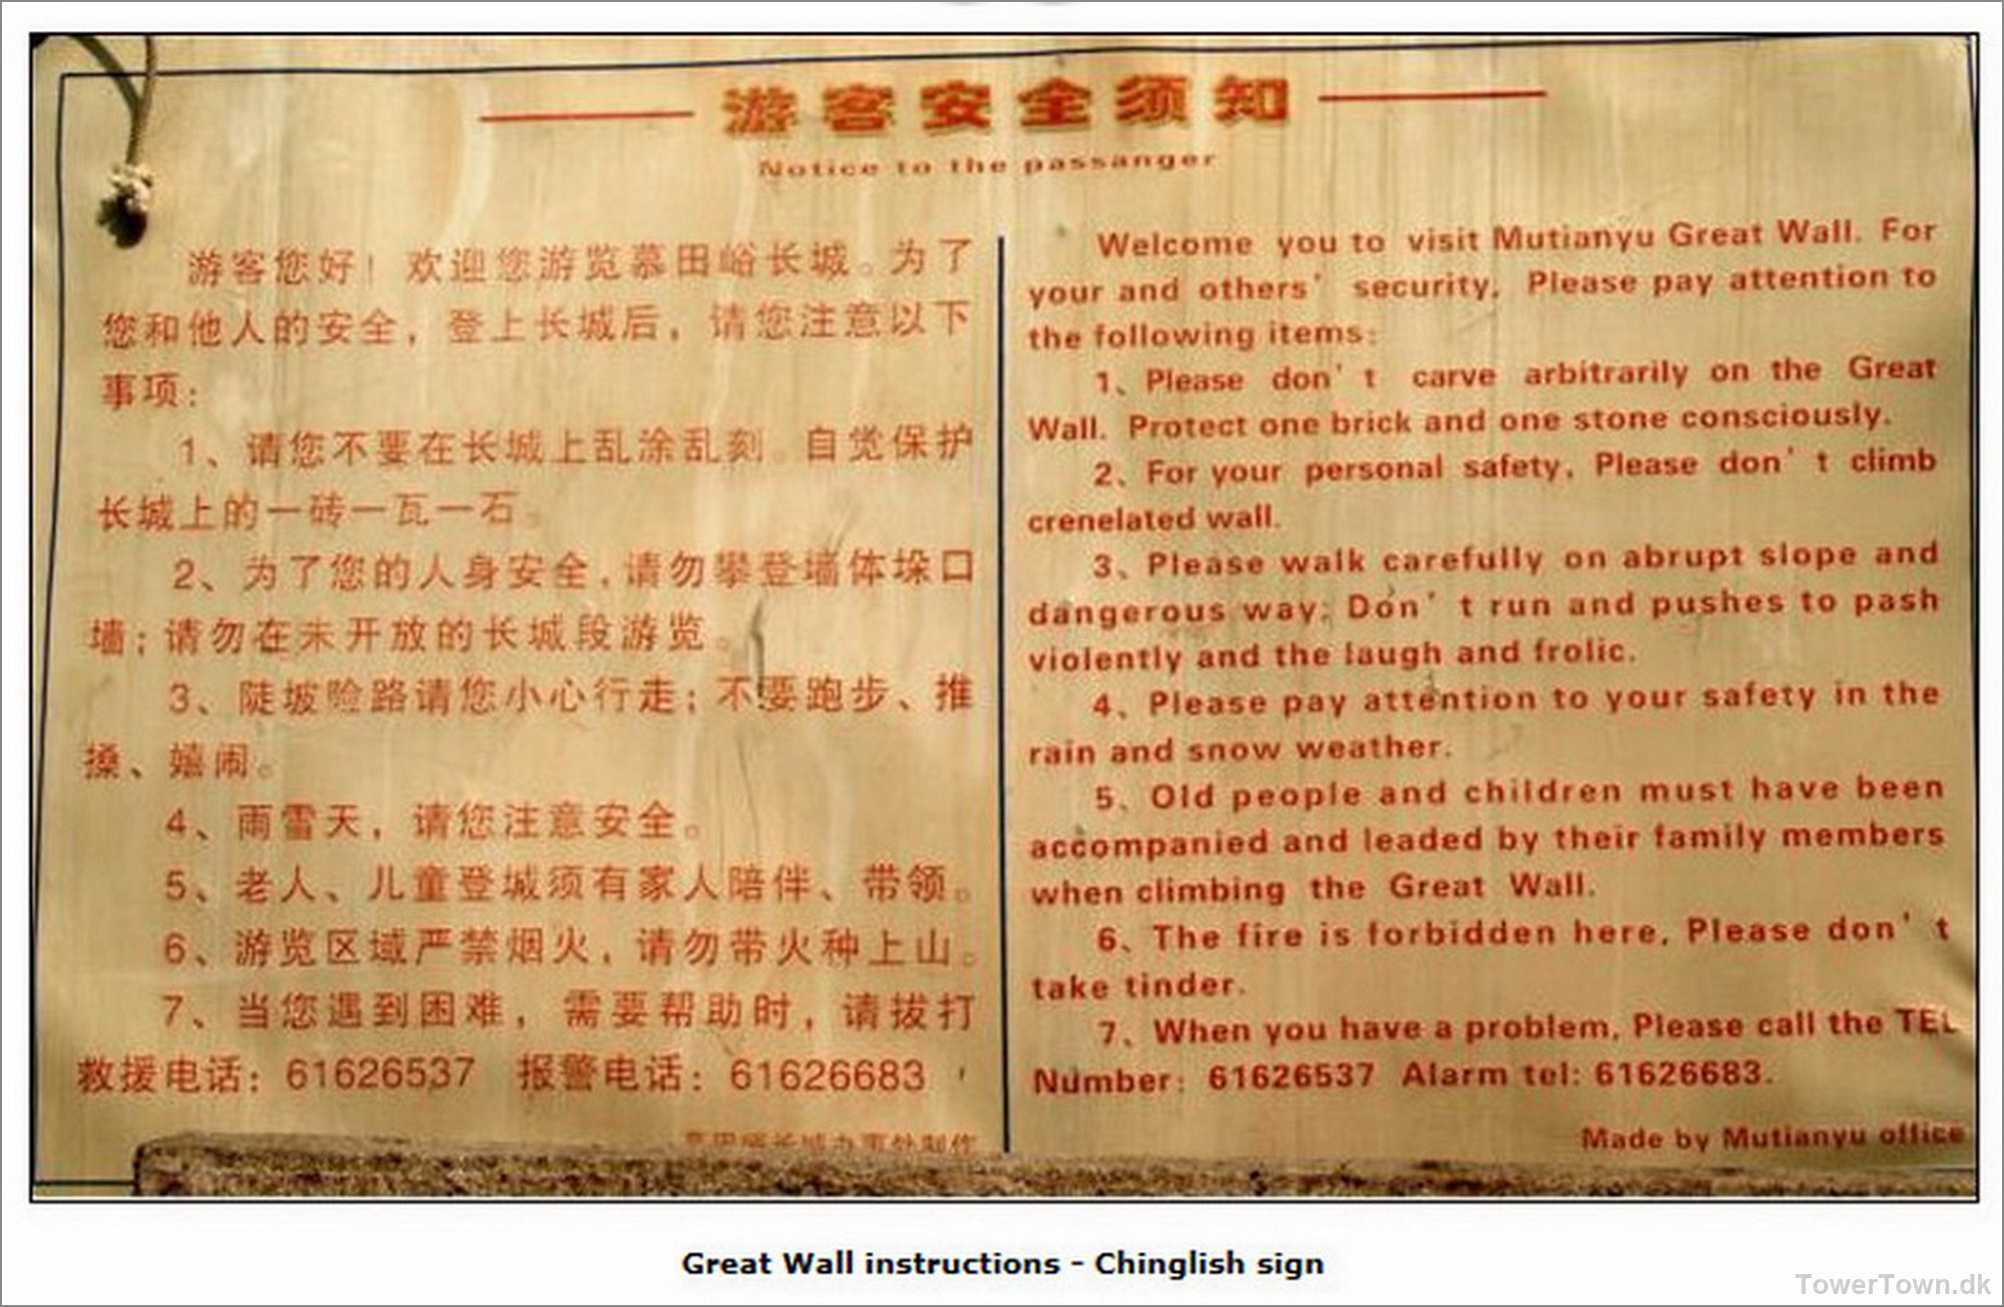 游客安全须知
Notice to the passanger
游客您好！欢迎您游览慕田峪长城。为了
您和他人的安全，登上长城后，请您注意以下
事项：
1、请您不要在长城上乱涂乱刻。自觉保护
长城上的一砖一瓦一石。
2、为了您的人身安全，请勿攀登墙体垛口
墙；请勿在未开放的长城段游览。
3、陡坡险路请您小心行走；不要跑步、推
搡、嬉闹。
4、雨雪天，请您注意安全。
5、老人、儿童登城须有家人陪伴、带领。
6、游览区域严禁烟火，请勿带火种上山。
7、当您遇到困难，需要帮助时，请拔打
救援电话：61626537 报警电话：61626683
慕田峪长城办事处制作
Welcome you to visit Mutianyu Great Wall. For
your and others' security, Please pay attention to
the following items:
1、Please don't carve arbitrarily on the Great
Wall. Protect one brick and one stone consciously.
2、For your personal safety, Please don't climb
crenelated wall.
3、Please walk carefully on abrupt slope and
dangerous way; Don't run and pushes to pash
violently and the laugh and frolic.
4、Please pay attention to your safety in the
rain and snow weather.
5、Old people and children must have been
accompanied and leaded by their family members
when climbing the Great Wall.
6、The fire is forbidden here, Please don't
take tinder.
7、When you have a problem, Please call the TEL
Number: 61626537 Alarm tel: 61626683.
Made by Mutianyu office
Great Wall instructions - Chinglish sign
TowerTown.dk